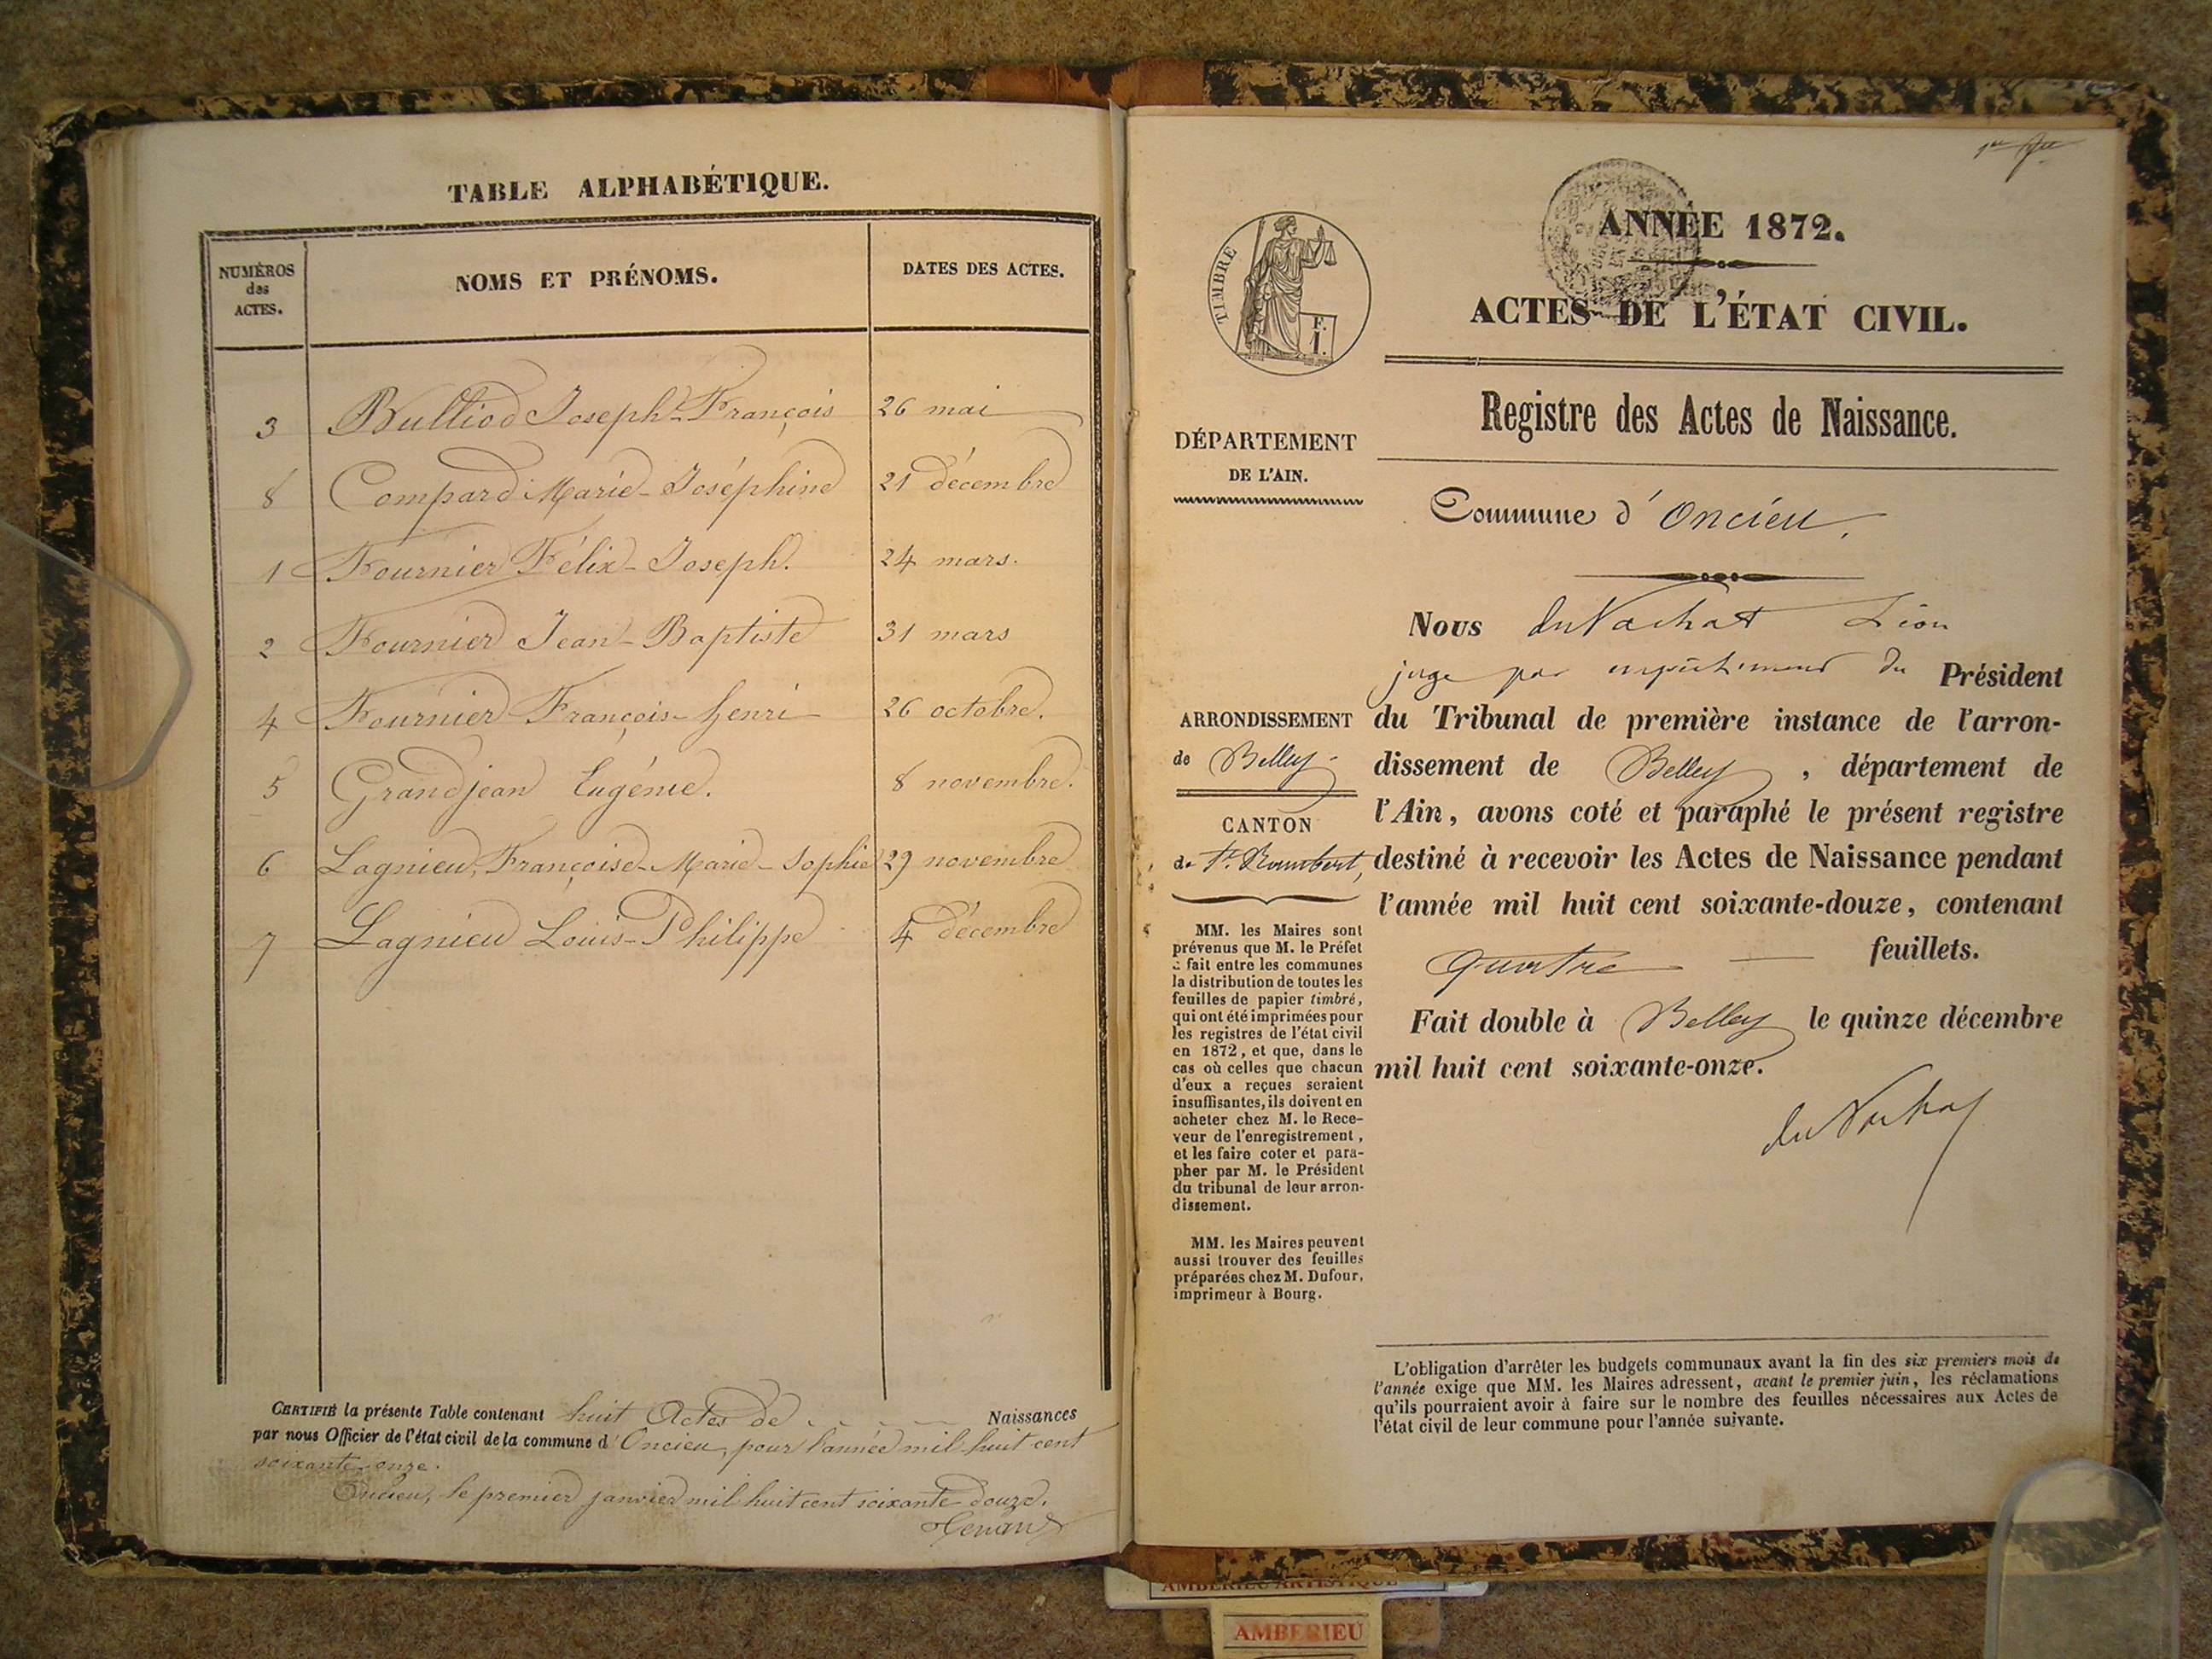 TABLE ALPHABÉTIQUE.
NUMÉROS des ACTES.
NOMS ET PRÉNOMS.
DATES DES ACTES.
3 Bulliod Joseph-François 26 mai
8 Compard Marie-Joséphine 21 décembre
1 Fournier Félix-Joseph. 24 mars.
2 Fournier Jean-Baptiste 31 mars
4 Fournier François-henri 26 octobre.
5 Grandjean Eugénie. 8 novembre.
6 Lagnieu, Françoise-Marie-Sophie 29 novembre
7 Lagnieu Louis-Philippe 4 décembre
CERTIFIÉ la présente Table contenant huit Actes de Naissances
par nous Officier de l'état civil de la commune d'Oncieu, pour l'année mil huit cent
soixante-onze.
Oncieu, le premier janvier mil huit cent soixante douze.
TIMBRE
F.
1.
ANNÉE 1872.
ACTES DE L'ÉTAT CIVIL.
Registre des Actes de Naissance.
DÉPARTEMENT
DE L'AIN.
Commune d'Oncieu,
ARRONDISSEMENT
de Belley
CANTON
de St. Rambert,
MM. les Maires sont
prévenus que M. le Préfet
a fait entre les communes
la distribution de toutes les
feuilles de papier timbré,
qui ont été imprimées pour
les registres de l'état civil
en 1872, et que, dans le
cas où celles que chacun
d'eux a reçues seraient
insuffisantes, ils doivent en
acheter chez M. le Rece-
veur de l'enregistrement,
et les faire coter et para-
pher par M. le Président
du tribunal de leur arron-
dissement.
MM. les Maires peuvent
aussi trouver des feuilles
préparées chez M. Dufour,
imprimeur à Bourg.
Nous du Vachat Léon
juge par empêchement du Président
du Tribunal de première instance de l'arron-
dissement de Belley, département de
l'Ain, avons coté et paraphé le présent registre
destiné à recevoir les Actes de Naissance pendant
l'année mil huit cent soixante-douze, contenant
quatre feuillets.
Fait double à Belley le quinze décembre
mil huit cent soixante-onze.
du Vachat
L'obligation d'arrêter les budgets communaux avant la fin des six premiers mois de
l'année exige que MM. les Maires adressent, avant le premier juin, les réclamations
qu'ils pourraient avoir à faire sur le nombre des feuilles nécessaires aux Actes de
l'état civil de leur commune pour l'année suivante.
AMBERIEU ARTISTIQUE
AMBERIEU